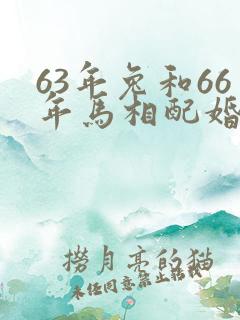 63年兔和66
年馬相配婚
撈月亮的猫
未任同意禁止转载